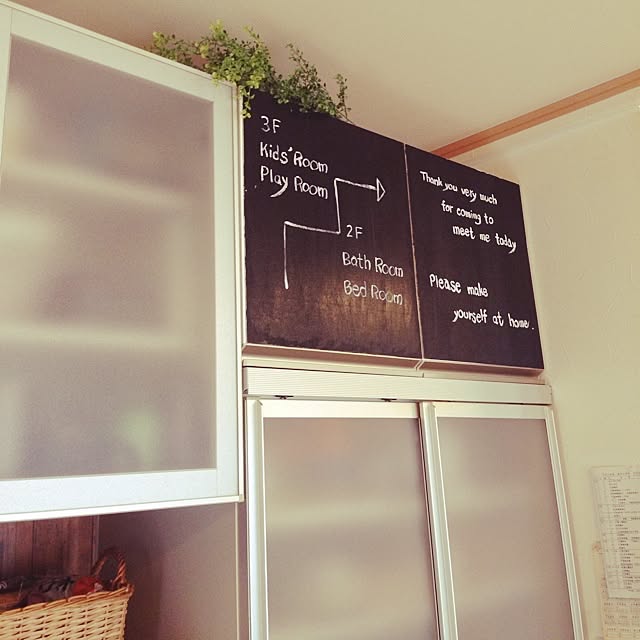 3F
Kids' Room
Play Room
2F
Bath Room
Bed Room
Thank you very much
for coming to
meet me today
Please make
yourself at home.